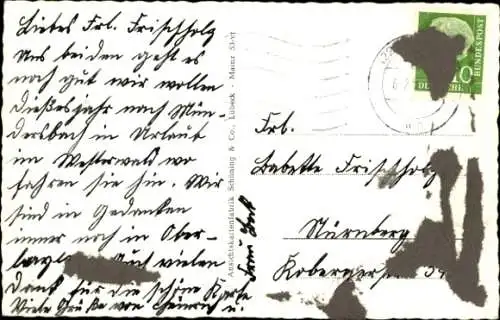 Liebes Frl. Frischholz
Uns beiden geht es
noch gut wir wollen
dießesjahr nach Mün-
dersbach in Urlaub
im Westerwald wo
fahren sie hin. Wir
sind in Gedanken
immer noch in Ober-
Auch vielen
Dank für die schöne Karte
Viele Grüße von Heinrich u.
Ansichtskartenfabrik Schöning & Co., Lübeck - Mainz
DEUTSCHE BUNDESPOST
10
Frl.
Babette Frischholz
Nürnberg
Kobergerstr.